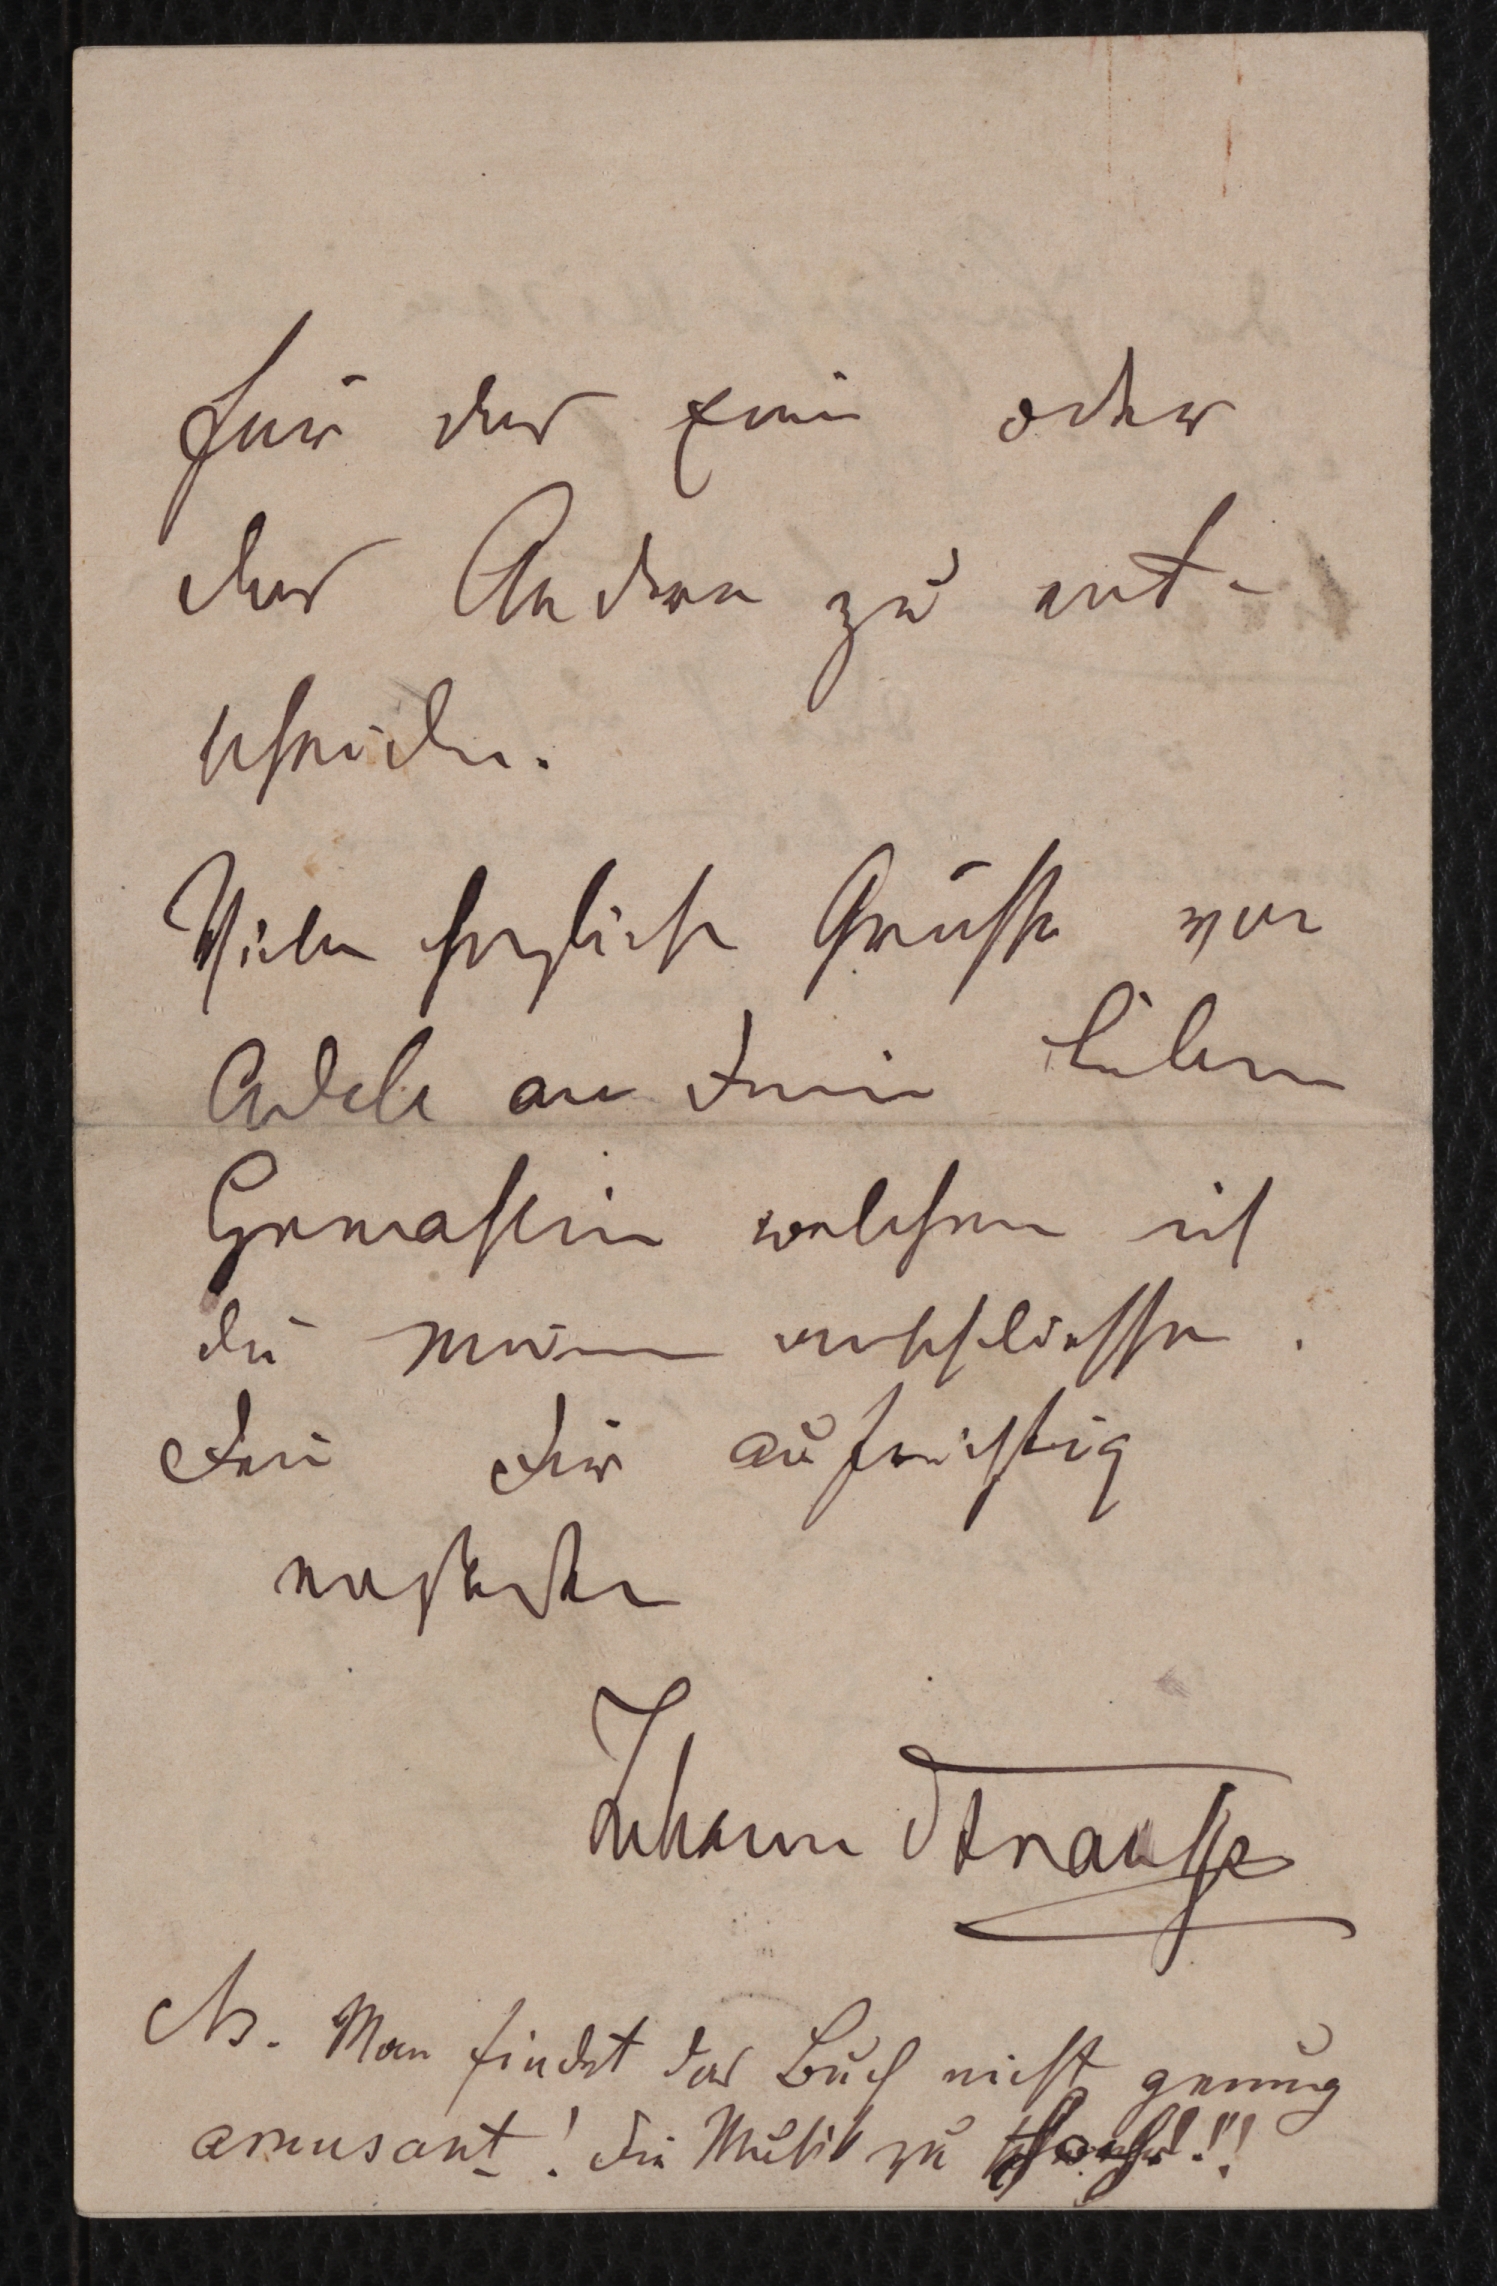 für das Eine oder
das Andere zu ent-
scheiden.
Viele herzliche Grüsse von
Adele an Deine liebe
Gemahlin welchen ich
die meinen anschliesse.
Dein Dir aufrichtig
Johann Strauss
NB. Man findet das Buch nicht genug
amusant! Die Musik zu